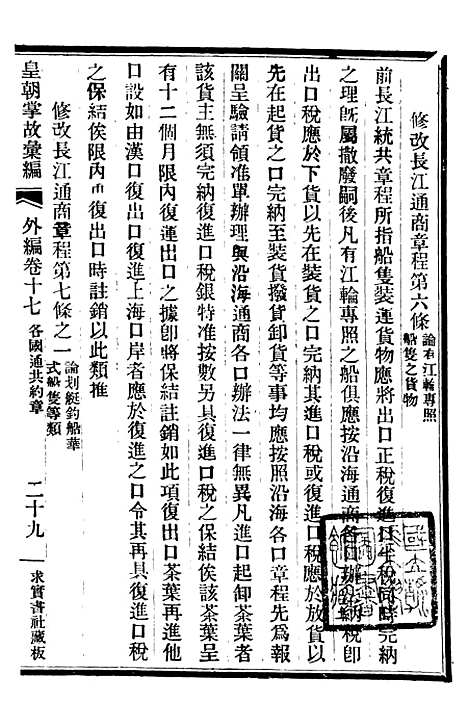 修改長江通商章程第六條 論有江輪專照船隻之貨物
前長江統共章程所指船隻裝運貨物應將出口正稅復進口半稅同時完納
之理旣屬撤廢嗣後凡有江輪專照之船俱應按沿海通商各口辦法納稅卽
出口稅應於下貨以先在裝貨之口完納其進口稅或復進口稅應於放貨以
先在起貨之口完納至裝貨撥貨卸貨等事均應按照沿海各口章程先爲報
關呈驗請領准單辦理與沿海通商各口辦法一律無異凡進口起卸茶葉者
該貨主無須完納復進口稅銀特准按數另具復進口稅之保結俟該茶葉呈
有十二個月限內復運出口之據卽將保結註銷如此項復出口茶葉再進他
口設如由漢口復出口復進上海口岸者應於復進之口令其再具復進口稅
之保結俟限內由復出口時註銷以此類推
修改長江通商章程第七條之一 論划艇釣船華式船隻等類
皇朝掌故彙編 外編卷十七 各國通共約章 二十九 求實書社藏板